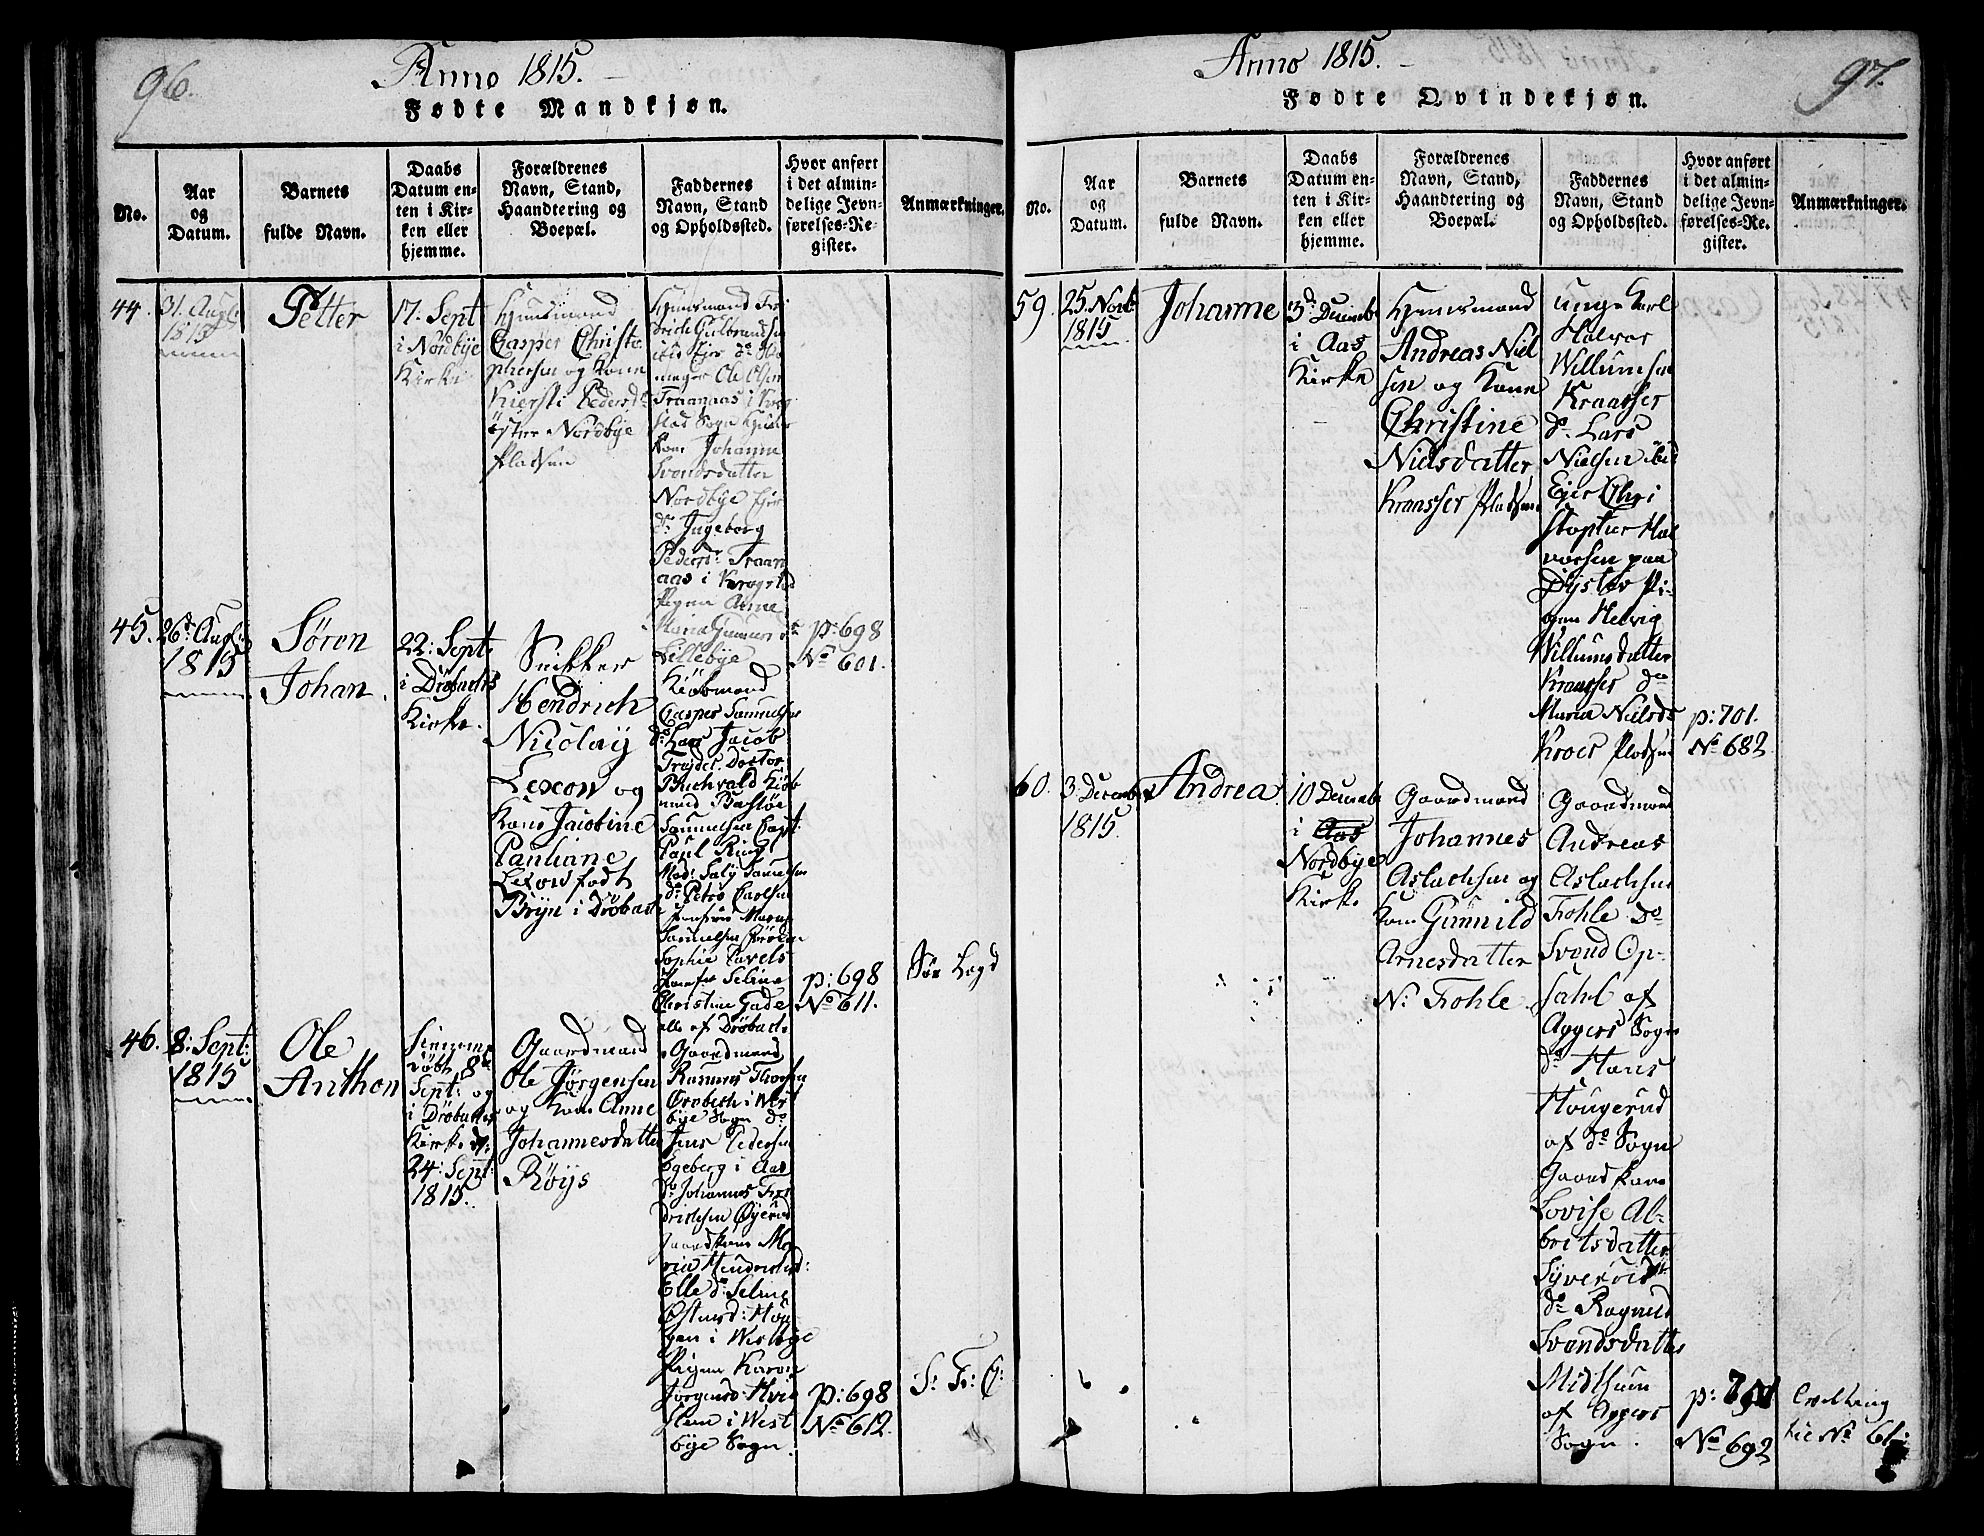 96.
Anno 1815.
Fødte Mandkjøn.
No.
Aar
og
Datum.
Barnets
fulde Navn.
Daabs
Datum en-
ten i Kir-
ken eller
hjemme.
Forældrenes
Navn, Stand,
Haandtering og
Boepæl.
Faddernes
Navn, Stand
og Opholdssted.
Hvor anført
i det almin-
delige Jevn-
førelses-Re-
gister.
Anmærkninger.
44.
31. Augl.
1815
Petter
17. Sept
i Nordbye
Kirke
Huusmand
Casper Christo
phersen og Kone
Kiersti Pedersd.
Østre Nordbye
Pladsen
Huusmand Fri
drich Gulbrandsen
Ole Olsen
Traanaas i Krog
stad Sogn
Kone Johanne
Svendsdatter
Nordbye Eier
do Ingeborg
Pedersd: Traan
aas i Krogstad
Pigen Anne
Maria Gunnersd
Lillebye
p: 698
No 601.
45.
26de Augl:
1815
Søren
Johan.
22: Sept.
i Drøbachs
Kirke.
Snekker
Hendrich
Nicolaÿ
Lexow og
Kone Jacobine
Pauliane
Lexow født
Brÿn i Drøbach
Kiøbmand
Casper Samuelsen
do Lars Jacob
Doctor
Buchvald Kiøb
mand
Samuelsen Capt:
Paul Ring
Mad: Salÿ Samuelsen
do Petro Carlsen
Jomfrue
Samuelsen Frøken
Sophie
Jomfr Seline
Christine Gade
alle af Drøbach
p: 698
No 611.
Sør Lagd
46.
8: Sept:
1815
Ole
Anthon
døbt 8de
Sept: og
i Drøbachs
Kirke d:
24: Sept:
1815.
Gaardmand
Ole Jørgensen
og Kone Anne
Johannesdatter
Røÿs
Gaardmand
Rasmus Thorsen
i West
bÿe Sogn do
Jens Pedersen
Egeberg i Aas
do Johannes Fre
drichsen Øÿerud
Gaardkone Ma
ria Hendricsd:
Elle do Seline
Østensd: Hou
gen i Westbye
Pigen Karen
Jørgensd: Hvid
sten i West
bÿe Sogn.
p: 698
No 612.
S: F: C:
97.
Anno 1815.
Fødte Qvindekjøn.
No.
Aar
og
Datum.
Barnets
fulde Navn.
Daabs
Datum en-
ten i Kir-
ken eller
hjemme.
Forældrenes
Navn, Stand,
Haandtering og
Boepæl.
Faddernes
Navn, Stand
og Opholdssted.
Hvor anført
i det almin-
delige Jevn-
førelses-Re-
gister.
Anmærkninger.
59.
25. Novb:
1815.
Johanne
3d. Decemb
i Aas
Kirke
Huusmand
Andreas Niel
sen og Kone
Christine
Nielsdatter
Kraasser Pladsen
Unge Karl
Halvor
Willumsen
Kraasser
do Lars
Nielsen ibid
Eier Chri
stopher Hal
vorsen paa
Dÿster Pi-
gen Helvig
Willumsdatter
Kraasser do
Maria Nielsd.
Kroer Pladsen
p: 701.
No 682
60.
3. Decemb
1815.
Andrea.
10 Decemb
i Aas
Nordbÿe
Kirke
Gaardmand
Johannes
Aslachsen og
Kone Gunnild
Arnesdatter
N: Frohle.
Gaardmand
Andreas
Aslachsen
Frohle do
Svend Op-
sahl af
Aggers Sogn
do Hans
Hougerud
af do Sogn
Gaardkone
Lovise Al-
bretsdatter
do Ragnild
Svendsdatter
Midthuun
af Aggers
Sogn.
p: 701
No 692
Tvilling
til No 61.